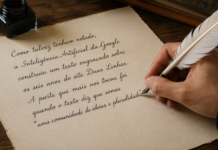 Como talvez tenham notado,
a Inteligência Artificial do Google
construiu um texto engraçado sobre
os seis anos do site Duas Linhas.
A parte que mais nos tocou foi
quando o texto diz que somos
"uma comunidade de ideias e pluralidade".